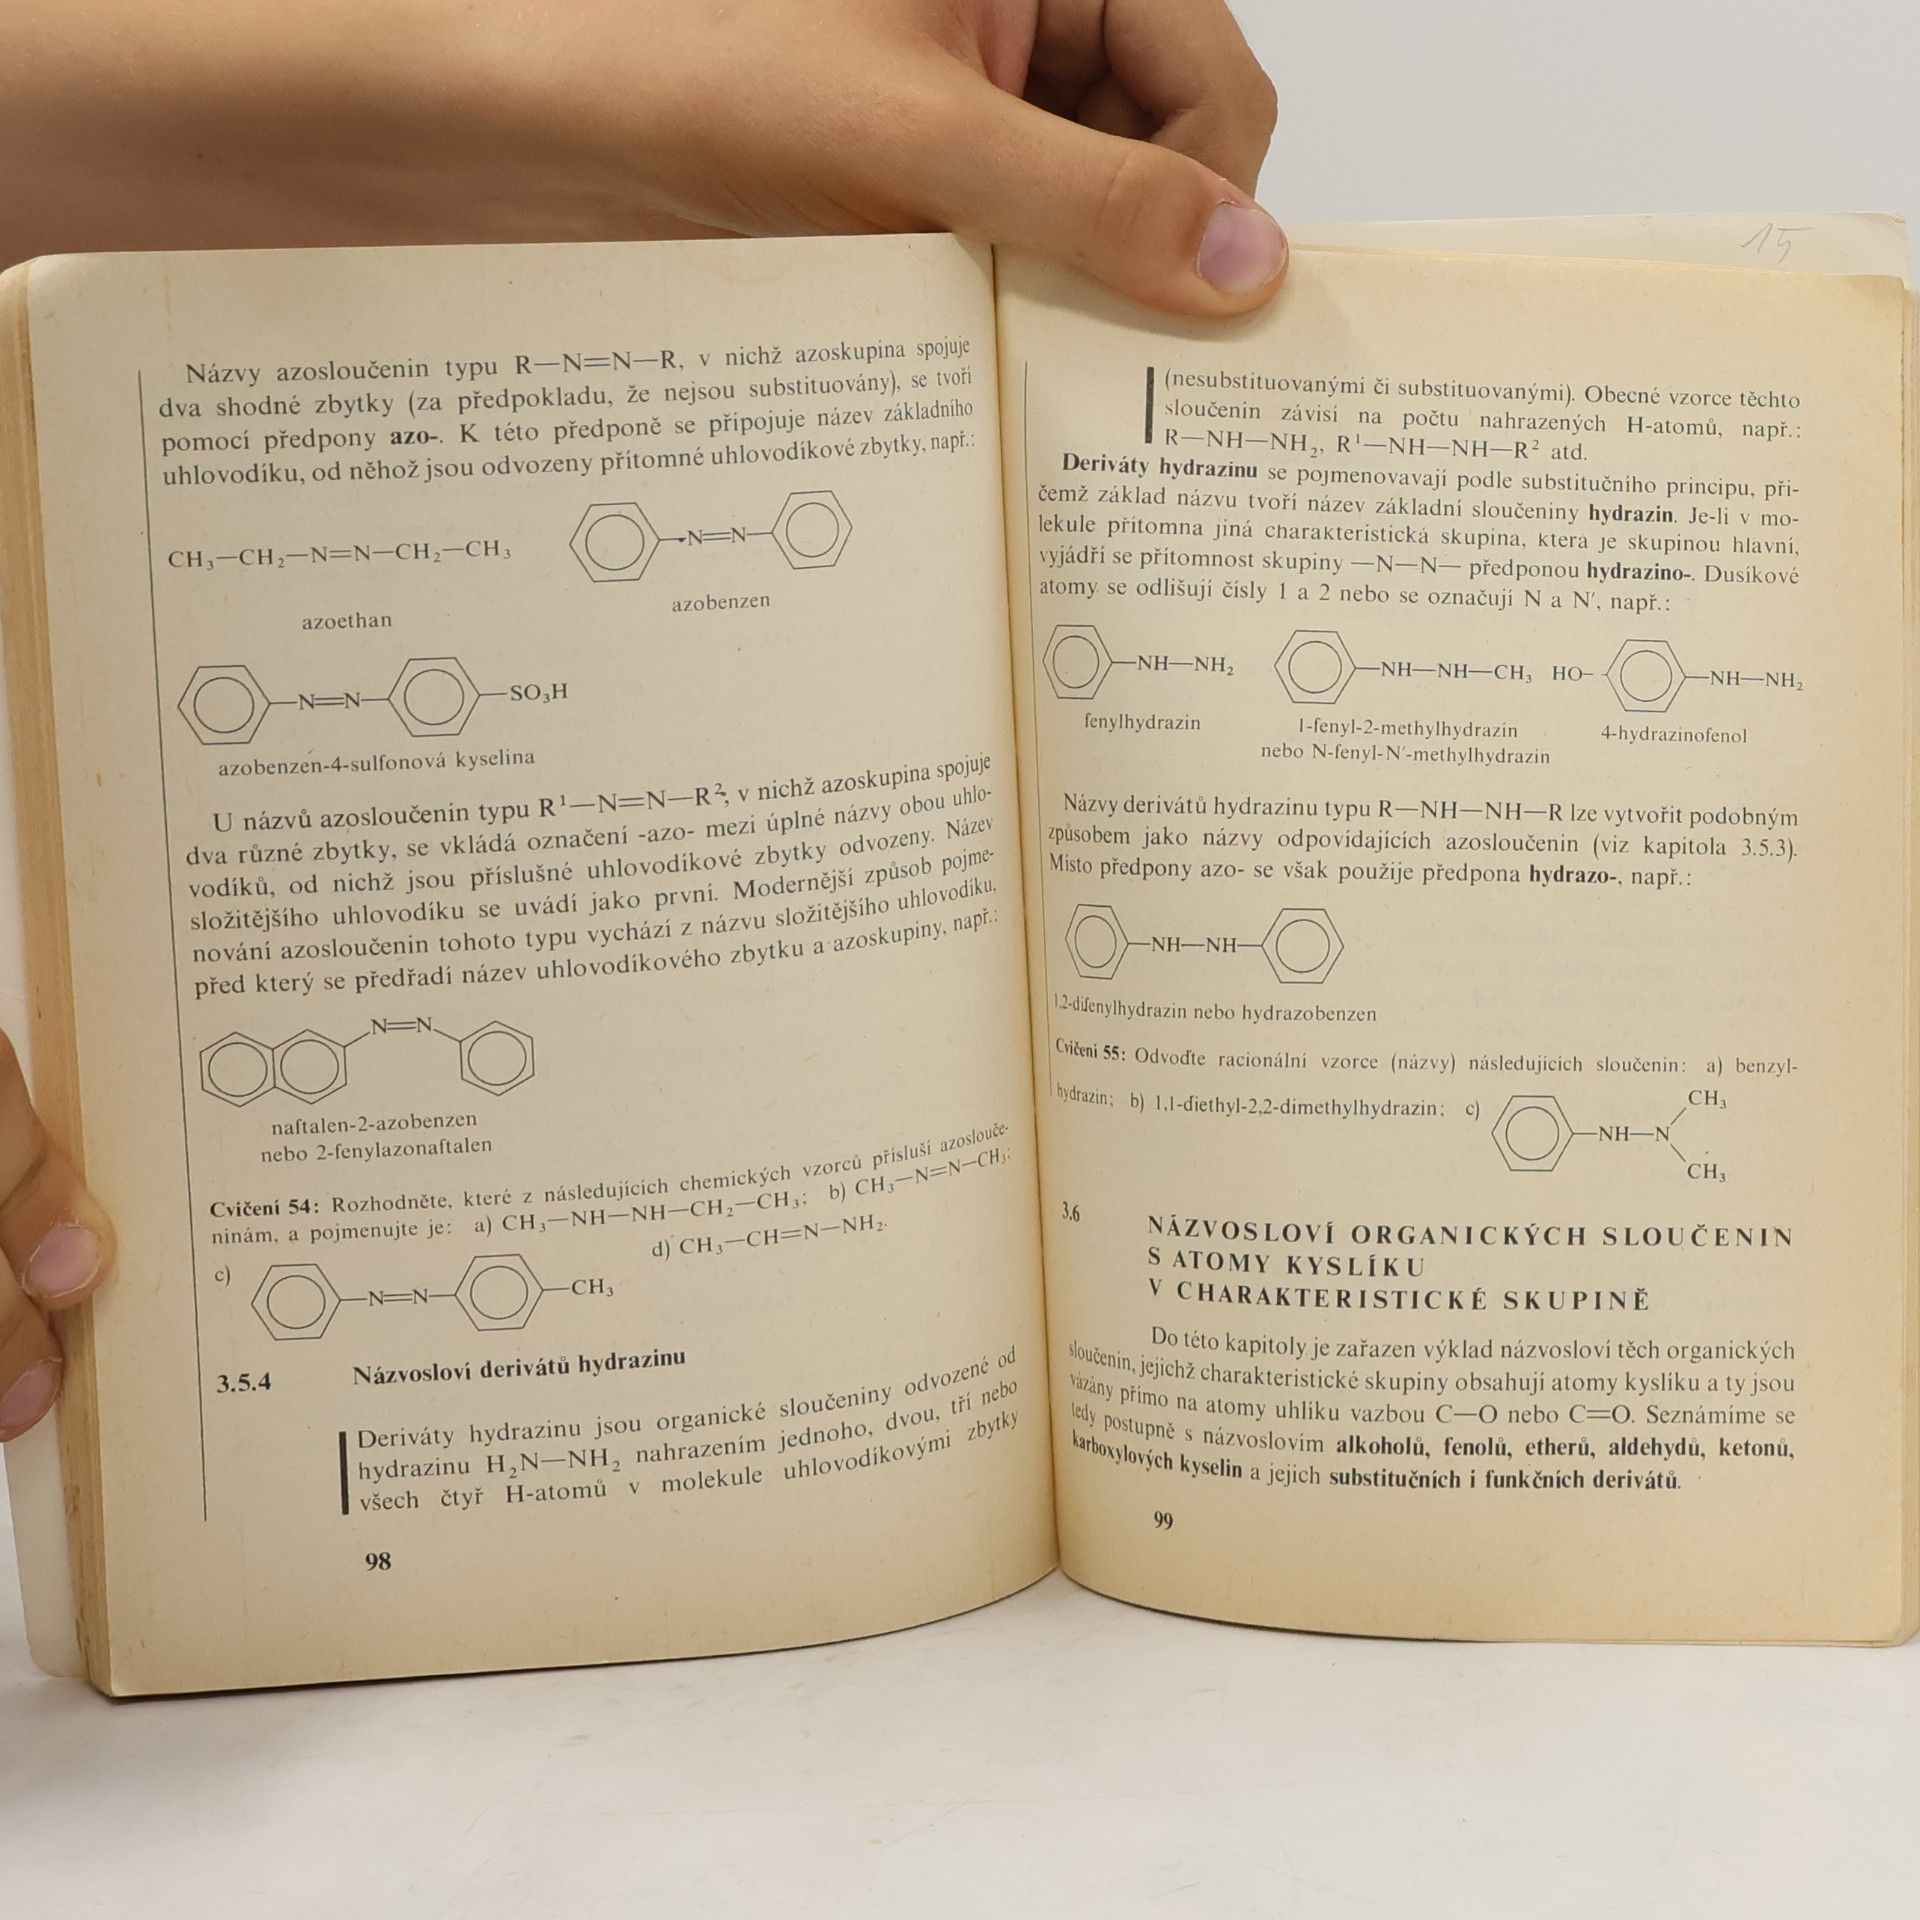 Názvy azosloučenin typu R—N=N—R, v nichž azoskupina spojuje
dva shodné zbytky (za předpokladu, že nejsou substituovány), se tvoří
pomocí předpony azo-. K této předponě se připojuje název základního
uhlovodíku, od něhož jsou odvozeny přítomné uhlovodíkové zbytky, např.:
CH₃—CH₂—N=N—CH₂—CH₃
—N=N—
azoethan
azobenzen
—N=N— —SO₃H
azobenzen-4-sulfonová kyselina
U názvů azosloučenin typu R¹—N=N—R², v nichž azoskupina spojuje
dva různé zbytky, se vkládá označení -azo- mezi úplné názvy obou uhlo-
vodíků, od nichž jsou příslušné uhlovodíkové zbytky odvozeny. Název
složitějšího uhlovodíku se uvádí jako první. Modernější způsob pojme-
nování azosloučenin tohoto typu vychází z názvu složitějšího uhlovodíku,
před který se předřadí název uhlovodíkového zbytku a azoskupiny, např.:
N=N
naftalen-2-azobenzen
nebo 2-fenylazonaftalen
Cvičení 54: Rozhodněte, které z následujících chemických vzorců přísluší azoslouče-
ninám, a pojmenujte je: a) CH₃—NH—NH—CH₂—CH₃; b) CH₃—N=N—CH₃;
c) —N=N— —CH₃ d) CH₃—CH=N—NH₂.
3.5.4 Názvosloví derivátů hydrazinu
Deriváty hydrazinu jsou organické sloučeniny odvozené od
hydrazinu H₂N—NH₂ nahrazením jednoho, dvou, tří nebo
všech čtyř H-atomů v molekule uhlovodíkovými zbytky
98
15
(nesubstituovanými či substituovanými). Obecné vzorce těchto
sloučenin závisí na počtu nahrazených H-atomů, např.:
R—NH—NH₂, R¹—NH—NH—R² atd.
Deriváty hydrazinu se pojmenovavají podle substitučního principu, při-
čemž základ názvu tvoří název základní sloučeniny hydrazin. Je-li v mo-
lekule přítomna jiná charakteristická skupina, která je skupinou hlavní,
vyjádří se přítomnost skupiny —N—N— předponou hydrazino-. Dusíkové
atomy se odlišují čísly 1 a 2 nebo se označují N a N′, např.:
—NH—NH₂ —NH—NH—CH₃ HO— —NH—NH₂
fenylhydrazin 1-fenyl-2-methylhydrazin 4-hydrazinofenol
nebo N-fenyl-N′-methylhydrazin
Názvy derivátů hydrazinu typu R—NH—NH—R lze vytvořit podobným
způsobem jako názvy odpovídajících azosloučenin (viz kapitola 3.5.3).
Místo předpony azo- se však použije předpona hydrazo-, např.:
—NH—NH—
1,2-difenylhydrazin nebo hydrazobenzen
Cvičení 55: Odvoďte racionální vzorce (názvy) následujících sloučenin: a) benzyl-
hydrazin; b) 1,1-diethyl-2,2-dimethylhydrazin; c) —NH—N
CH₃
CH₃
3.6
NÁZVOSLOVÍ ORGANICKÝCH SLOUČENIN
S ATOMY KYSLÍKU
V CHARAKTERISTICKÉ SKUPINĚ
Do této kapitoly je zařazen výklad názvosloví těch organických
sloučenin, jejichž charakteristické skupiny obsahují atomy kyslíku a ty jsou
vázány přímo na atomy uhlíku vazbou C—O nebo C=O. Seznámíme se
tedy postupně s názvoslovím alkoholů, fenolů, etherů, aldehydů, ketonů,
karboxylových kyselin a jejich substitučních i funkčních derivátů.
99